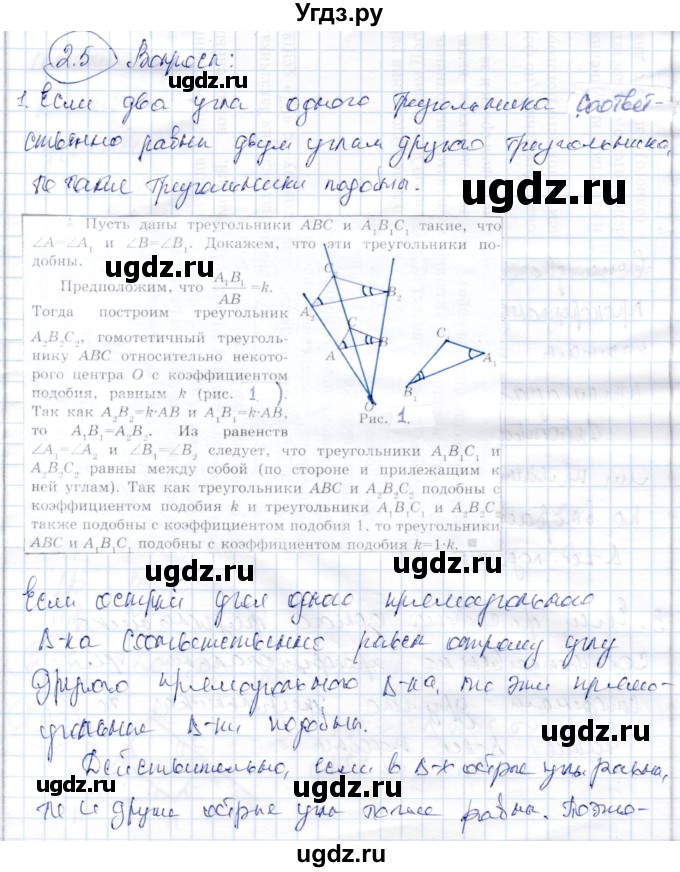 Угдз.ру
2.5 Вопросы:
ugdz.ru
1. Если два угла одного треугольника соответ-
ственно равны двум углам другого треугольника,
то такие треугольники подобны.
ugdz.ru
Пусть даны треугольники ABC и A₁B₁C₁ такие, что
∠A=∠A₁ и ∠B=∠B₁. Докажем, что эти треугольники по-
добны.
Предположим, что A₁B₁/AB =k.
Тогда построим треугольник
A₂B₂C₂, гомотетичный треуголь-
нику ABC относительно некото-
рого центра O с коэффициентом
подобия, равным k (рис. 1).
Так как A₂B₂=k·AB и A₁B₁=k·AB,
то A₁B₁=A₂B₂. Из равенств
∠A₁=∠A₂ и ∠B₁=∠B₂ следует, что треугольники A₁B₁C₁ и
A₂B₂C₂ равны между собой (по стороне и прилежащим к
ней углам). Так как треугольники ABC и A₂B₂C₂ подобны с
коэффициентом подобия k и треугольники A₁B₁C₁ и A₂B₂C₂
также подобны с коэффициентом подобия 1, то треугольники
ABC и A₁B₁C₁ подобны с коэффициентом подобия k=1·k.
C₂
A₂
B₂
C
A
B
C₁
A₁
B₁
O
Рис. 1.
ugdz.ru
Если острый угол одного прямоугольного
Δ-ка соответственно равен острому углу
другого прямоугольного Δ-ка, то эти прямо-
угольные Δ-ки подобны.
ugdz.ru
Действительно, если в Δ-х острые углы равны,
то и другие острые углы тоже равны. Поэто-
ugdz.ru